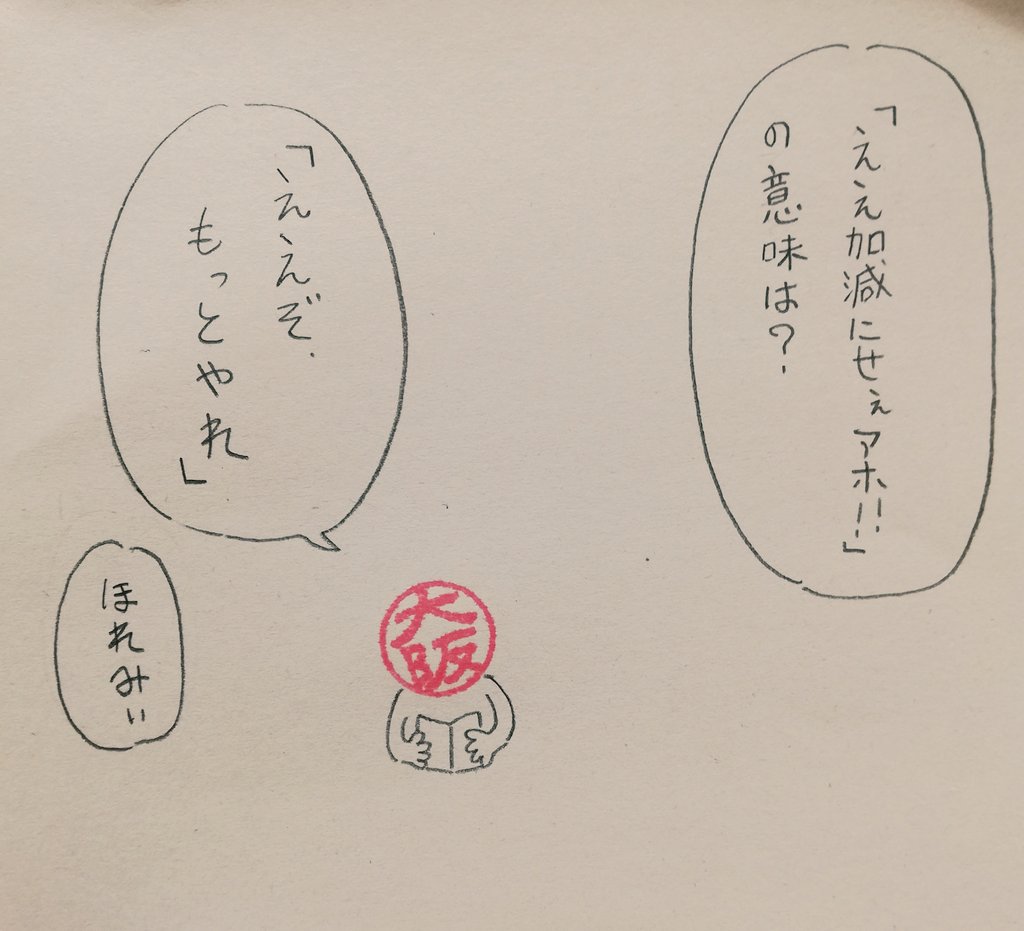 「ええ加減にせぇアホ!!」
の意味は?
「ええぞ.
もっとやれ」
ほれみぃ
大
阪